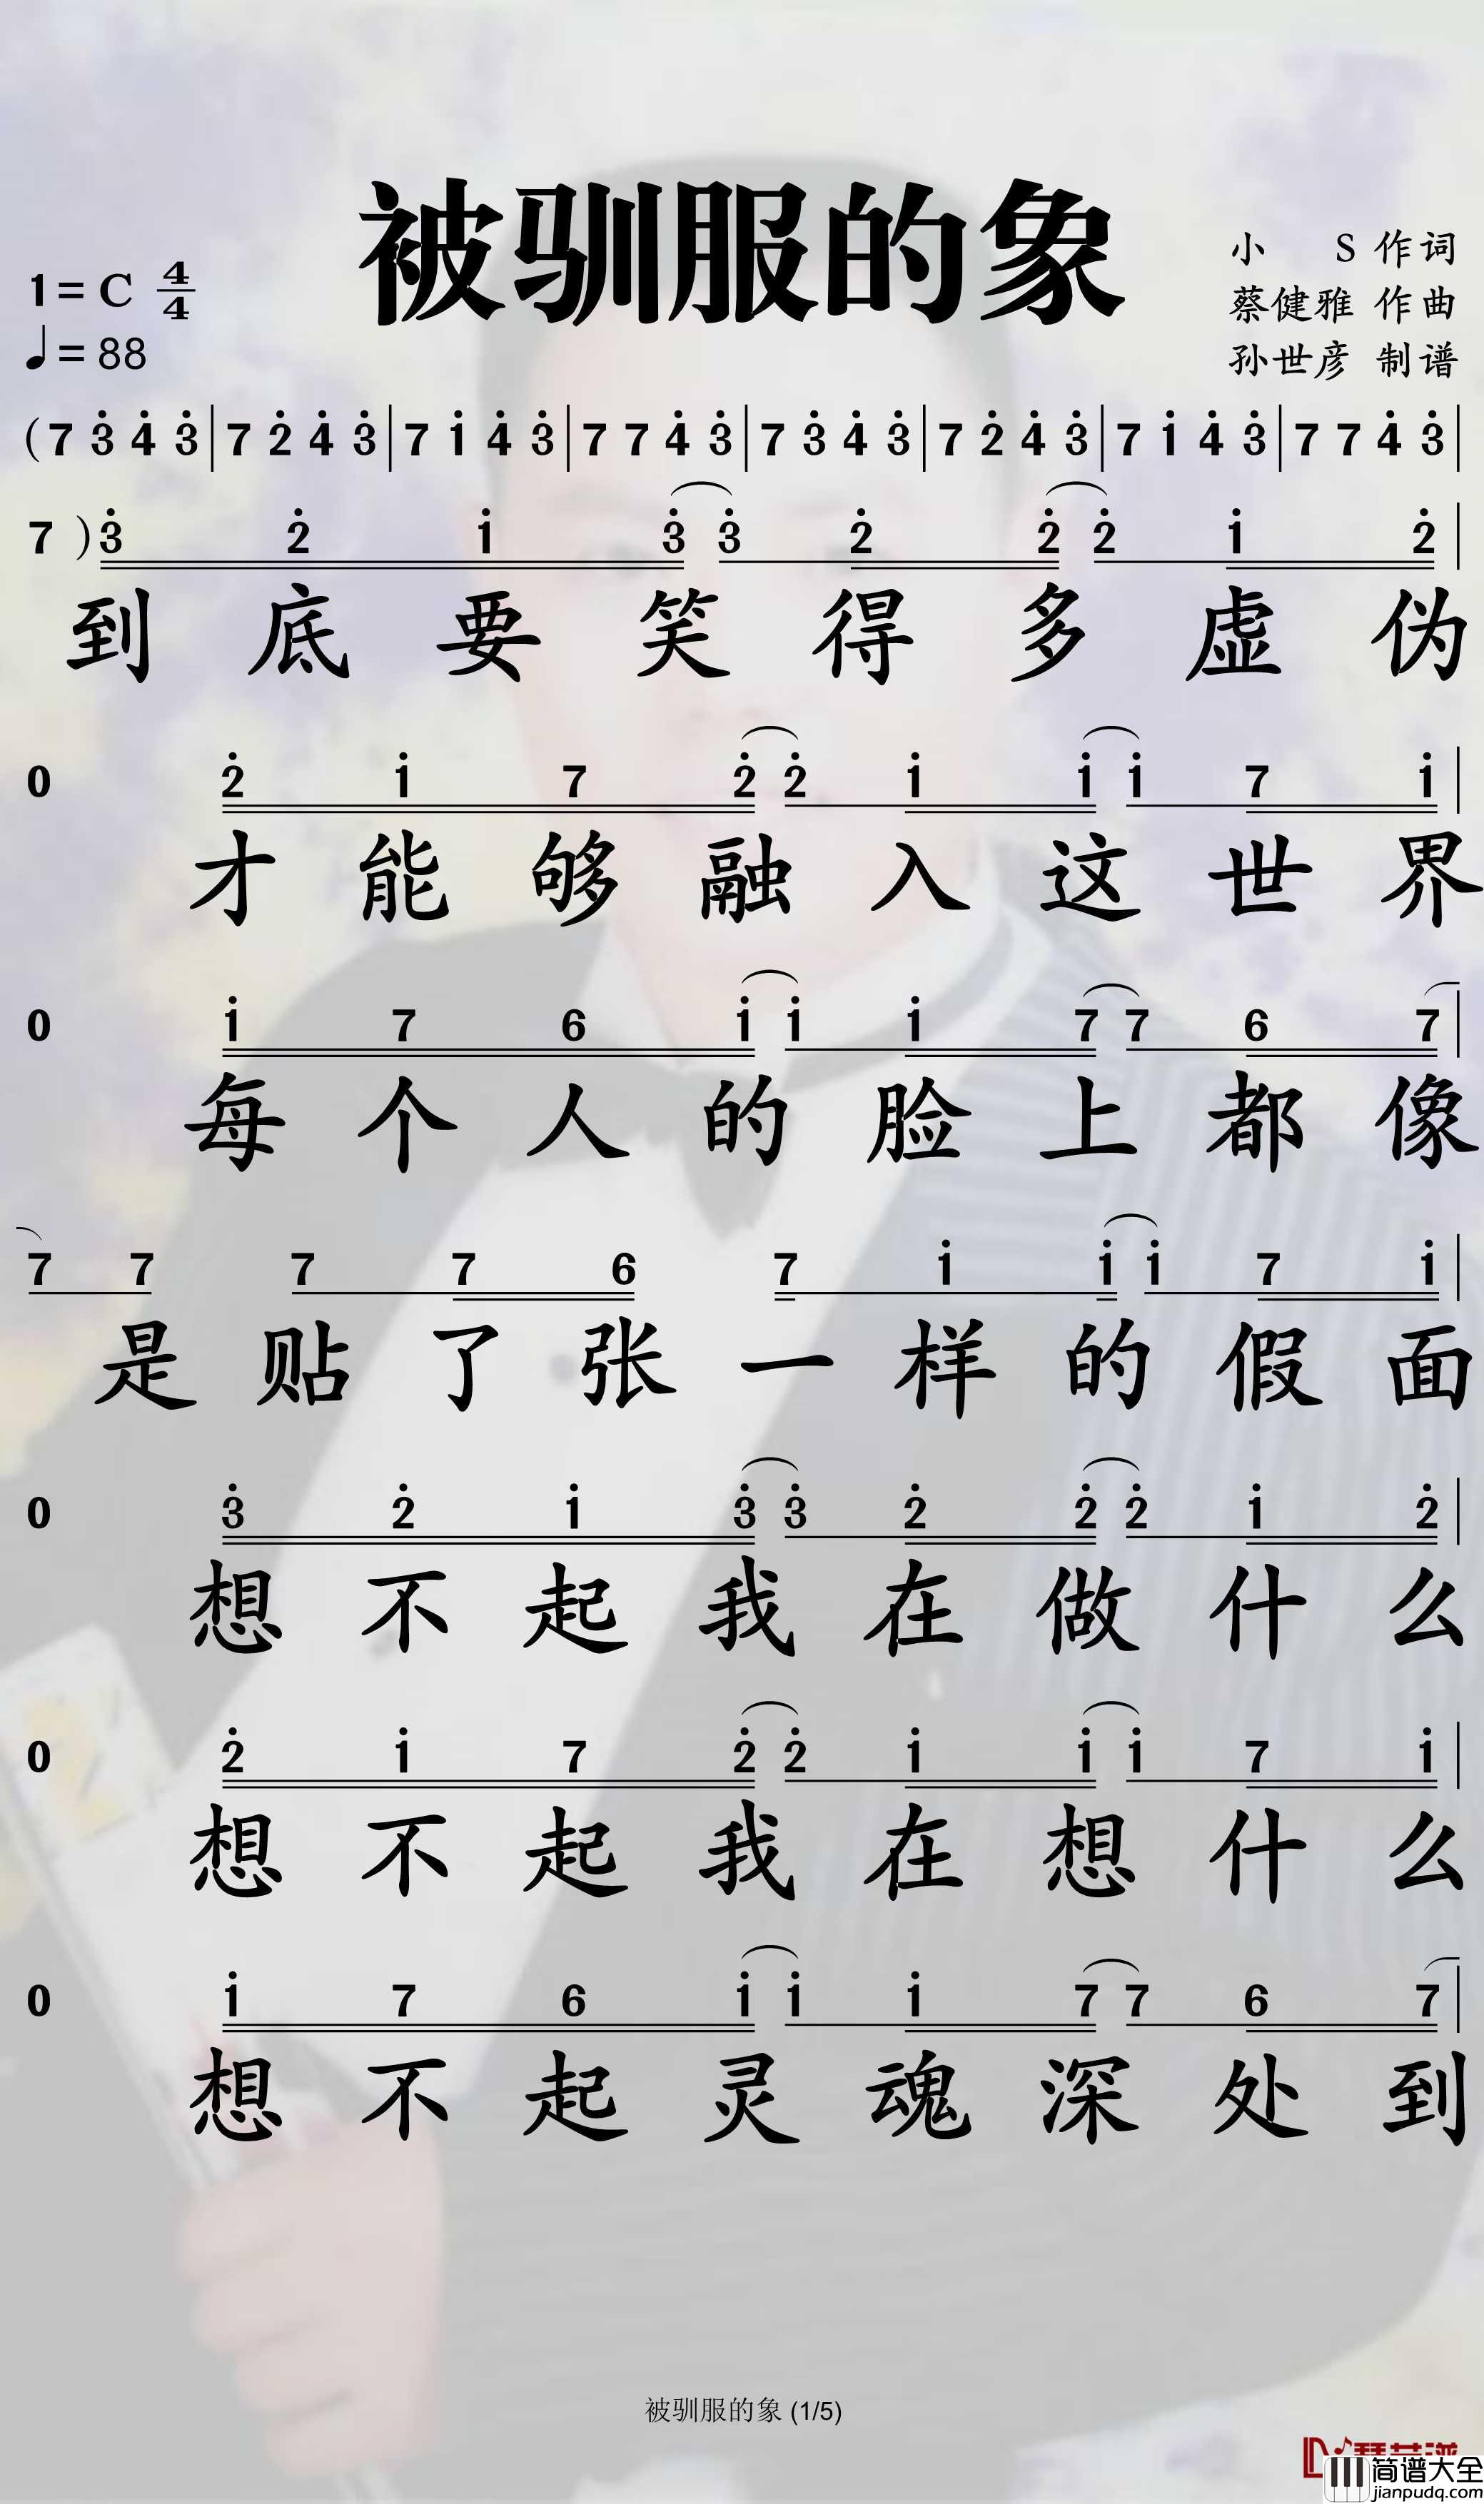 被驯服的象
小 S 作词
1=C 4/4
蔡健雅 作曲
♩=88
孙世彦 制谱
(7 3̇ 4̇ 3̇ | 7 2̇ 4̇ 3̇ | 7 1̇ 4̇ 3̇ | 7 7 4̇ 3̇ | 7 3̇ 4̇ 3̇ | 7 2̇ 4̇ 3̇ | 7 1̇ 4̇ 3̇ | 7 7 4̇ 3̇ |
7 ) 3̇ 2̇ 1̇ 3̇ 3̇ 2̇ 2̇ 2̇ 1̇ 2̇ |
到底要笑得多虚伪
0 2̇ 1̇ 7 2̇ 2̇ 1̇ 1̇ 1̇ 7 1̇ |
才能够融入这世界
0 1̇ 7 6 1̇ 1̇ 1̇ 7 7 6 7 |
每个人的脸上都像
7 7 7 7 6 7 1̇ 1̇ 1̇ 7 1̇ |
是贴了张一样的假面
0 3̇ 2̇ 1̇ 3̇ 3̇ 2̇ 2̇ 2̇ 1̇ 2̇ |
想不起我在做什么
0 2̇ 1̇ 7 2̇ 2̇ 1̇ 1̇ 1̇ 7 1̇ |
想不起我在想什么
0 1̇ 7 6 1̇ 1̇ 1̇ 7 7 6 7 |
想不起灵魂深处到
被驯服的象 (1/5)
简谱大全
jianpudq.com